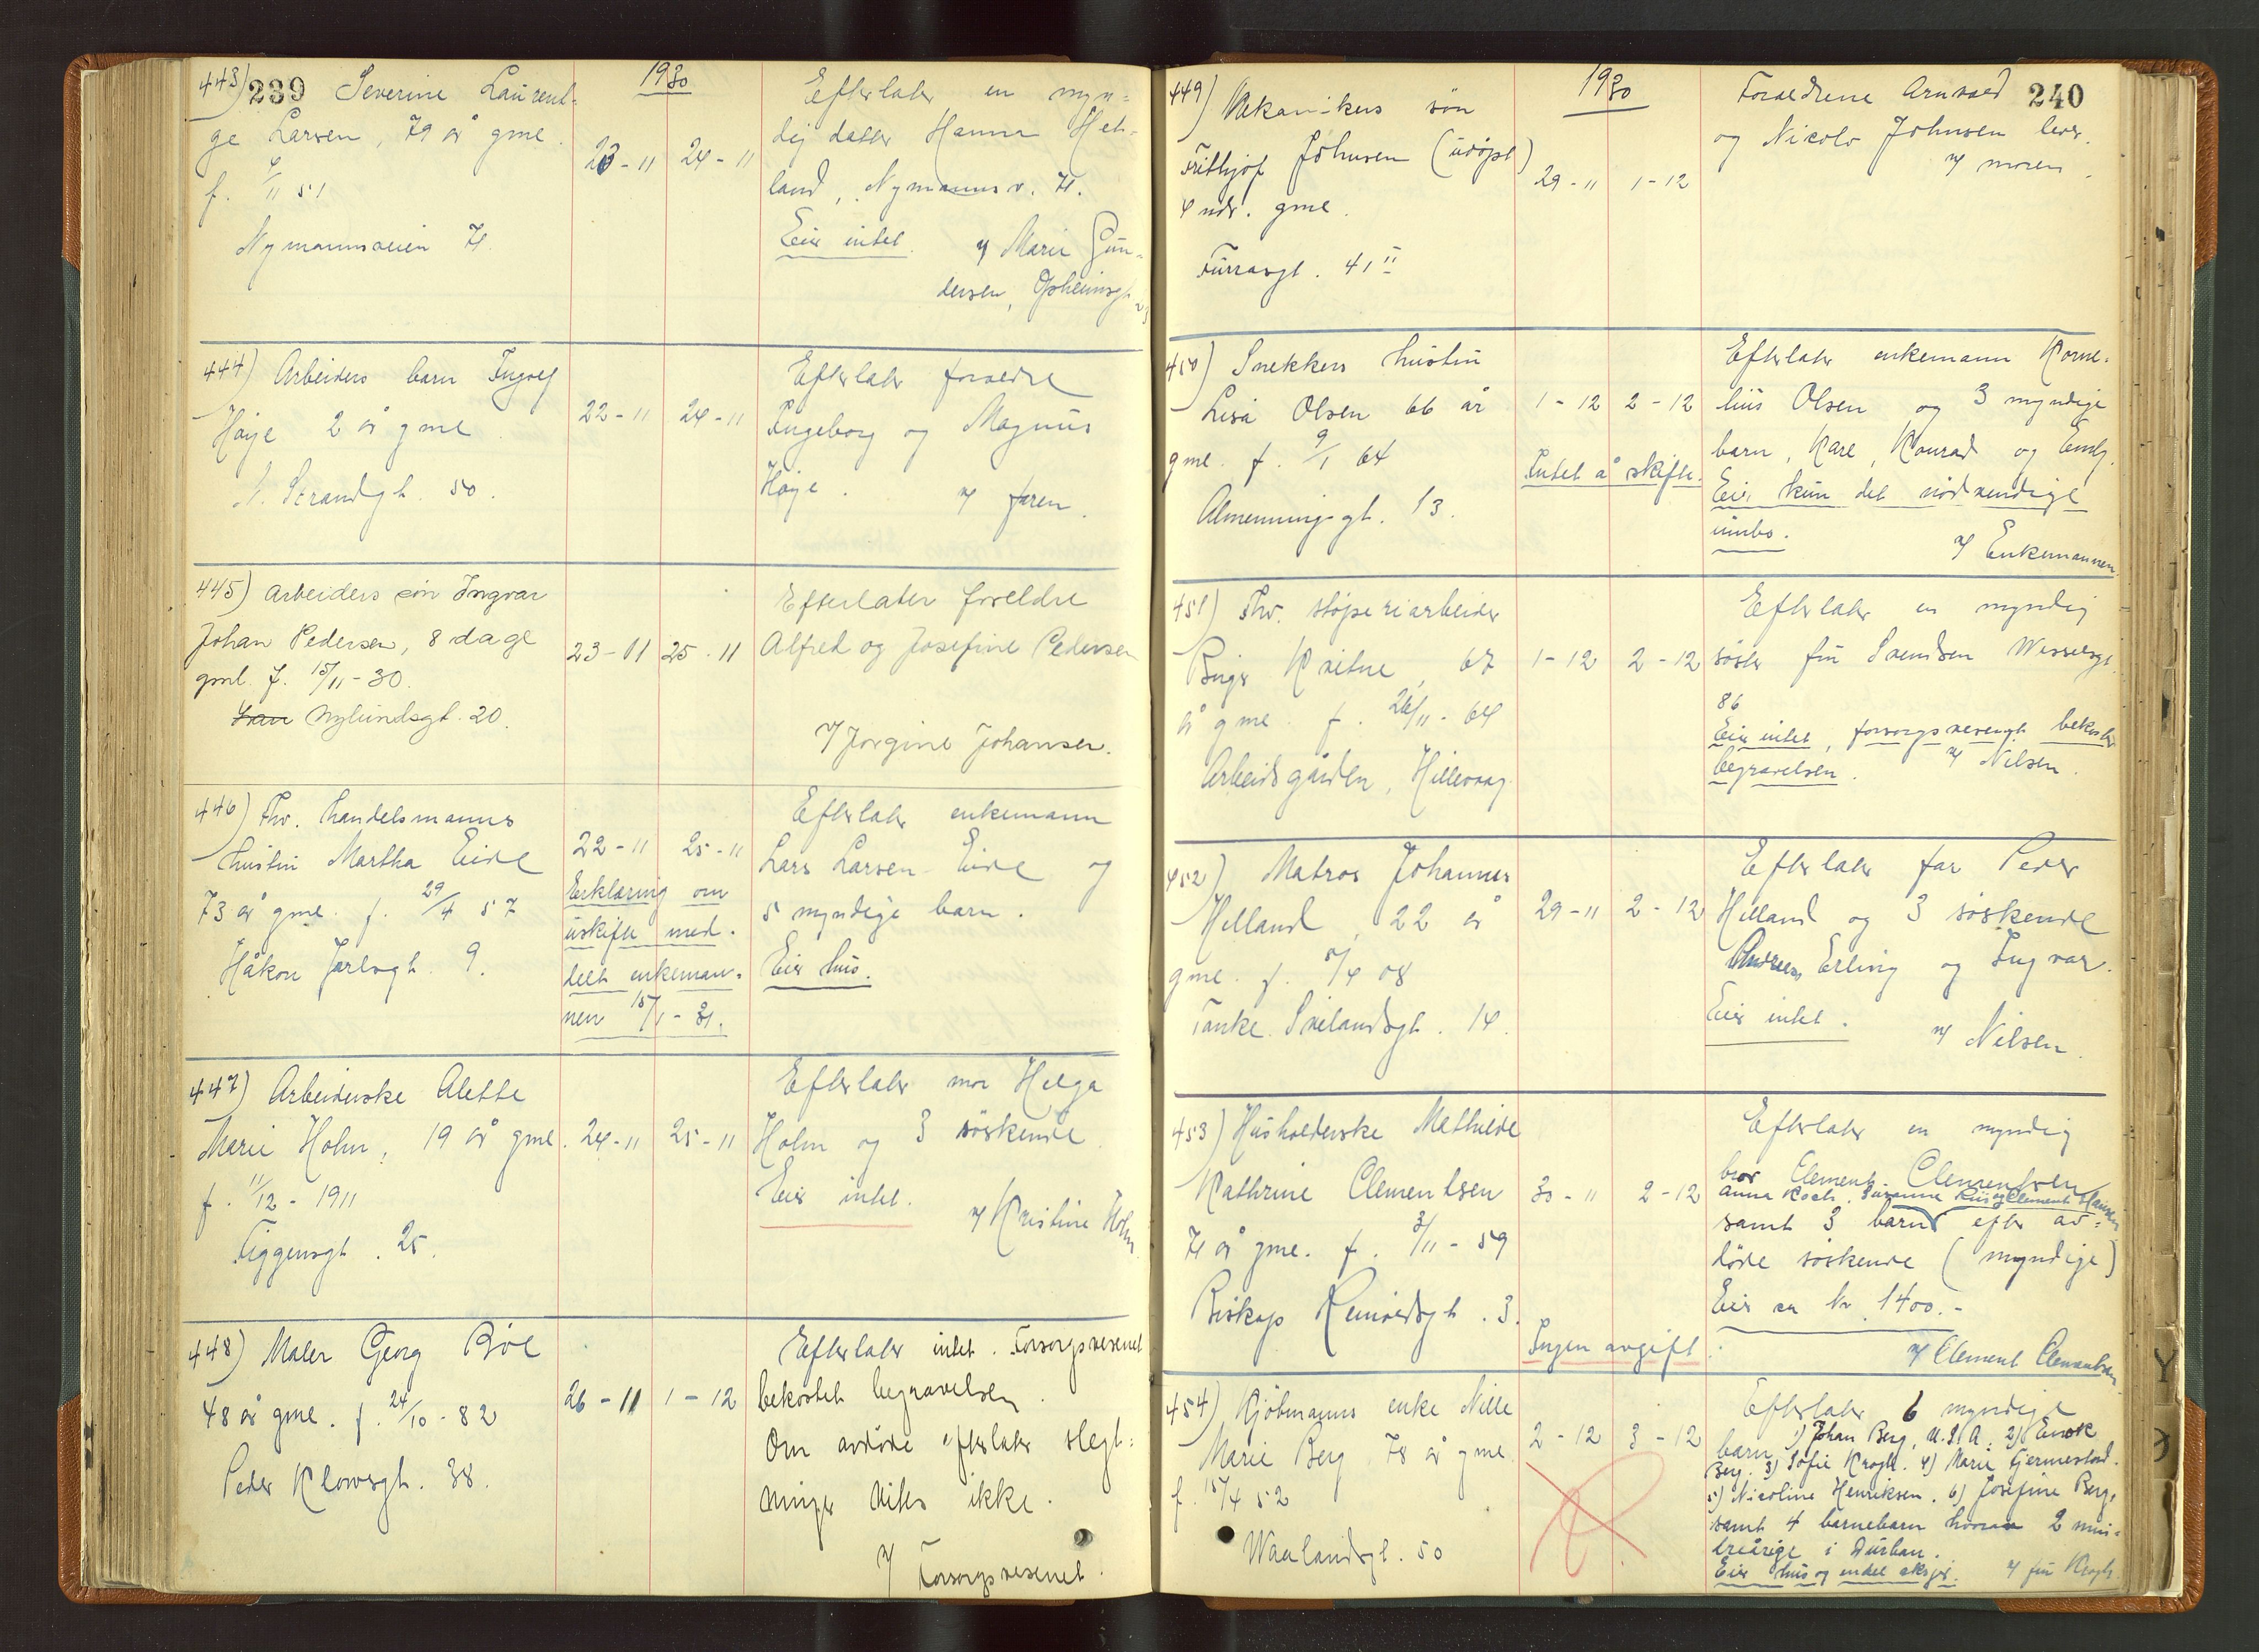 239
443) Severine Laurent-
ge Larsen, 79 år gml.
f. 6/11 51
Nymannsveien 71.
1930
23-11 24-11
Efterlater en myn-
dig datter Hanna Hel-
land, Nymannsv. 71.
Eier intet. v/ Marie Gun-
dersen, Opheimsgt 23
444) Arbeiders barn Ingolf
Høje 2 år gml
N. Strandgt. 50.
22-11 24-11
Efterlater foreldre
Ingeborg og Magnus
Høje. v/ faren.
445) Arbeiders søn Ingvar
Johan Pedersen, 8 dage
gml. f. 15/11-30.
Nylundsgt. 20.
23-11 25-11
Efterlater foreldre
Alfred og Josefine Pedersen
v/ Jorgine Johansen.
446) Fhv. handelsmanns
hustru Martha Eide
73 år gml. f. 29/4 57
Håkon Jarlsgt. 9.
22-11 25-11
Erklæring om
uskifte med-
delt enkeman-
nen 15/1-31.
Efterlater enkemann
Lars Larsen Eide og
5 myndige barn.
Eier hus.
447) Arbeiderske Alette
Marie Holm, 19 år gml.
f. 11/12-1911
Figgensgt. 25.
24-11 25-11
Efterlater mor Helga
Holm og 3 søskende.
Eier intet.
v/ Kristine Holm.
448) Maler Georg Bøe
48 år gml. f. 24/10-82
Peder Klowsgt. 38.
26-11 1-12
Efterlater intet. Forsorgsvesenet
bekostet begravelsen.
Om avdøde efterlater slegt-
ninger vites ikke.
v/ Forsorgsvesenet.
240
449) Mekanikers søn
Frithjof Johnsen (udøpt)
4 mdr. gml.
Furrasgt. 41 II
1930
29-11 1-12
Foreldrene Arnvald
og Nicolo Johnsen lever.
v/ moren.
450) Snekkers hustru
Lisa Olsen 66 år
gml. f. 9/1 64
Almenningsgt. 13.
1-12 2-12
Intet å skifte.
Efterlater enkemann Korne-
lius Olsen og 3 myndige
barn, Kare, Konrad og Emly.
Eier kun det nødvendige
innbo.
v/ Enkemannen.
451) Fhv. støperiarbeider
Birger Kvitne, 67
år gml. f. 26/11-64
Arbeidsgården, Hillevaag.
1-12 2-12
Efterlater en myndig
søster fru Svendsen Wesselsgt.
86
Eier intet, forsorgsvesenet bekoster
begravelsen. v/ Nilsen.
452) Matros Johannes
Helland, 22 år
gml. f. 5/4 08
Tanke Svilandsgt. 14.
29-11 2-12
Efterlater far Peder
Helland og 3 søskende
Andreas Erling og Ingvar.
Eier intet.
v/ Nilsen.
453) Husholderske Mathilde
Kathrine Clementsen
71 år gml. f. 3/11-59
Biskop Reinoldsgt. 3.
30-11 2-12
Ingen avgift.
Efterlater en myndig
bror Clement Clementsen
Anna Koch, Susanne Riis og Clement Hansen
samt 3 barn efter av-
døde søskende (myndige)
Eier ca kr 1400.-
v/ Clement Clementsen.
454) Kjøbmanns enke Nille
Marie Berg, 78 år gml.
f. 15/4 52
Waalandsgt. 50
2-12 3-12
Efterlater 6 myndige
barn 1) Johan Berg, U.S.A. 2) Enok
Berg. 3) Sofie Krogh. 4) Marie Fjermestad.
5) Nicoline Henriksen. 6) Josefine Berg,
samt 4 barnebarn hvorav 2 min-
dreårige i Durban.
Eier hus og endel aksjer. v/ fru Krogh.